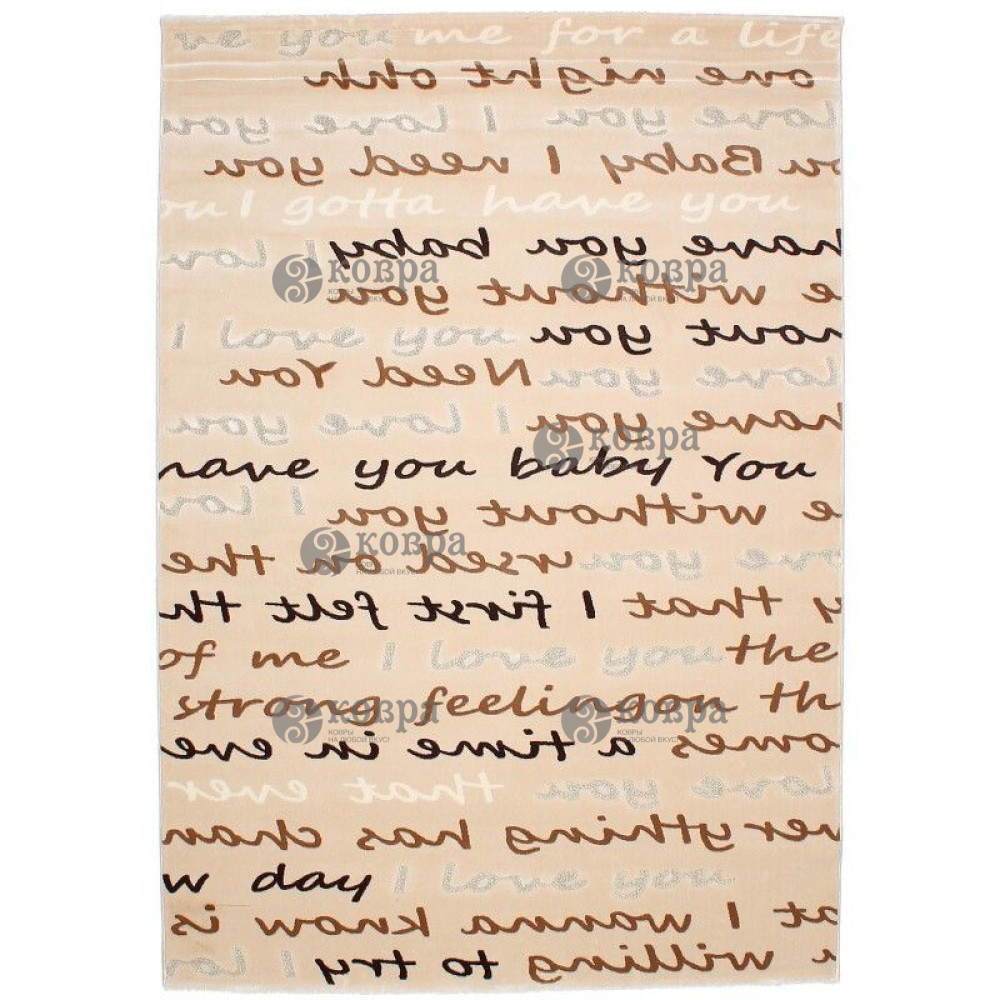 ve you me for a life
one night ohh
love you I love you
ou Baby I need you
ou I gotta have you
have you baby I lov
КОВРА КОВРА
КОВРЫ
НА ЛЮБОЙ ВКУС!
e without you
I love you hout you
love you Need You
have you I love you
КОВРА
have you baby You
e without you I lov
КОВРА
КОВРЫ
НА ЛЮБОЙ ВКУС!
ove you ursed on the
y that I first felt th
of me I love you the
strong feeling on th
КОВРА КОВРА
КОВРЫ КОВРЫ
НА ЛЮБОЙ ВКУС! НА ЛЮБОЙ ВКУС!
omes a time in eve
love you that ever
verything has chan
w day I love you
at I wanna know is
a willing to try I lov